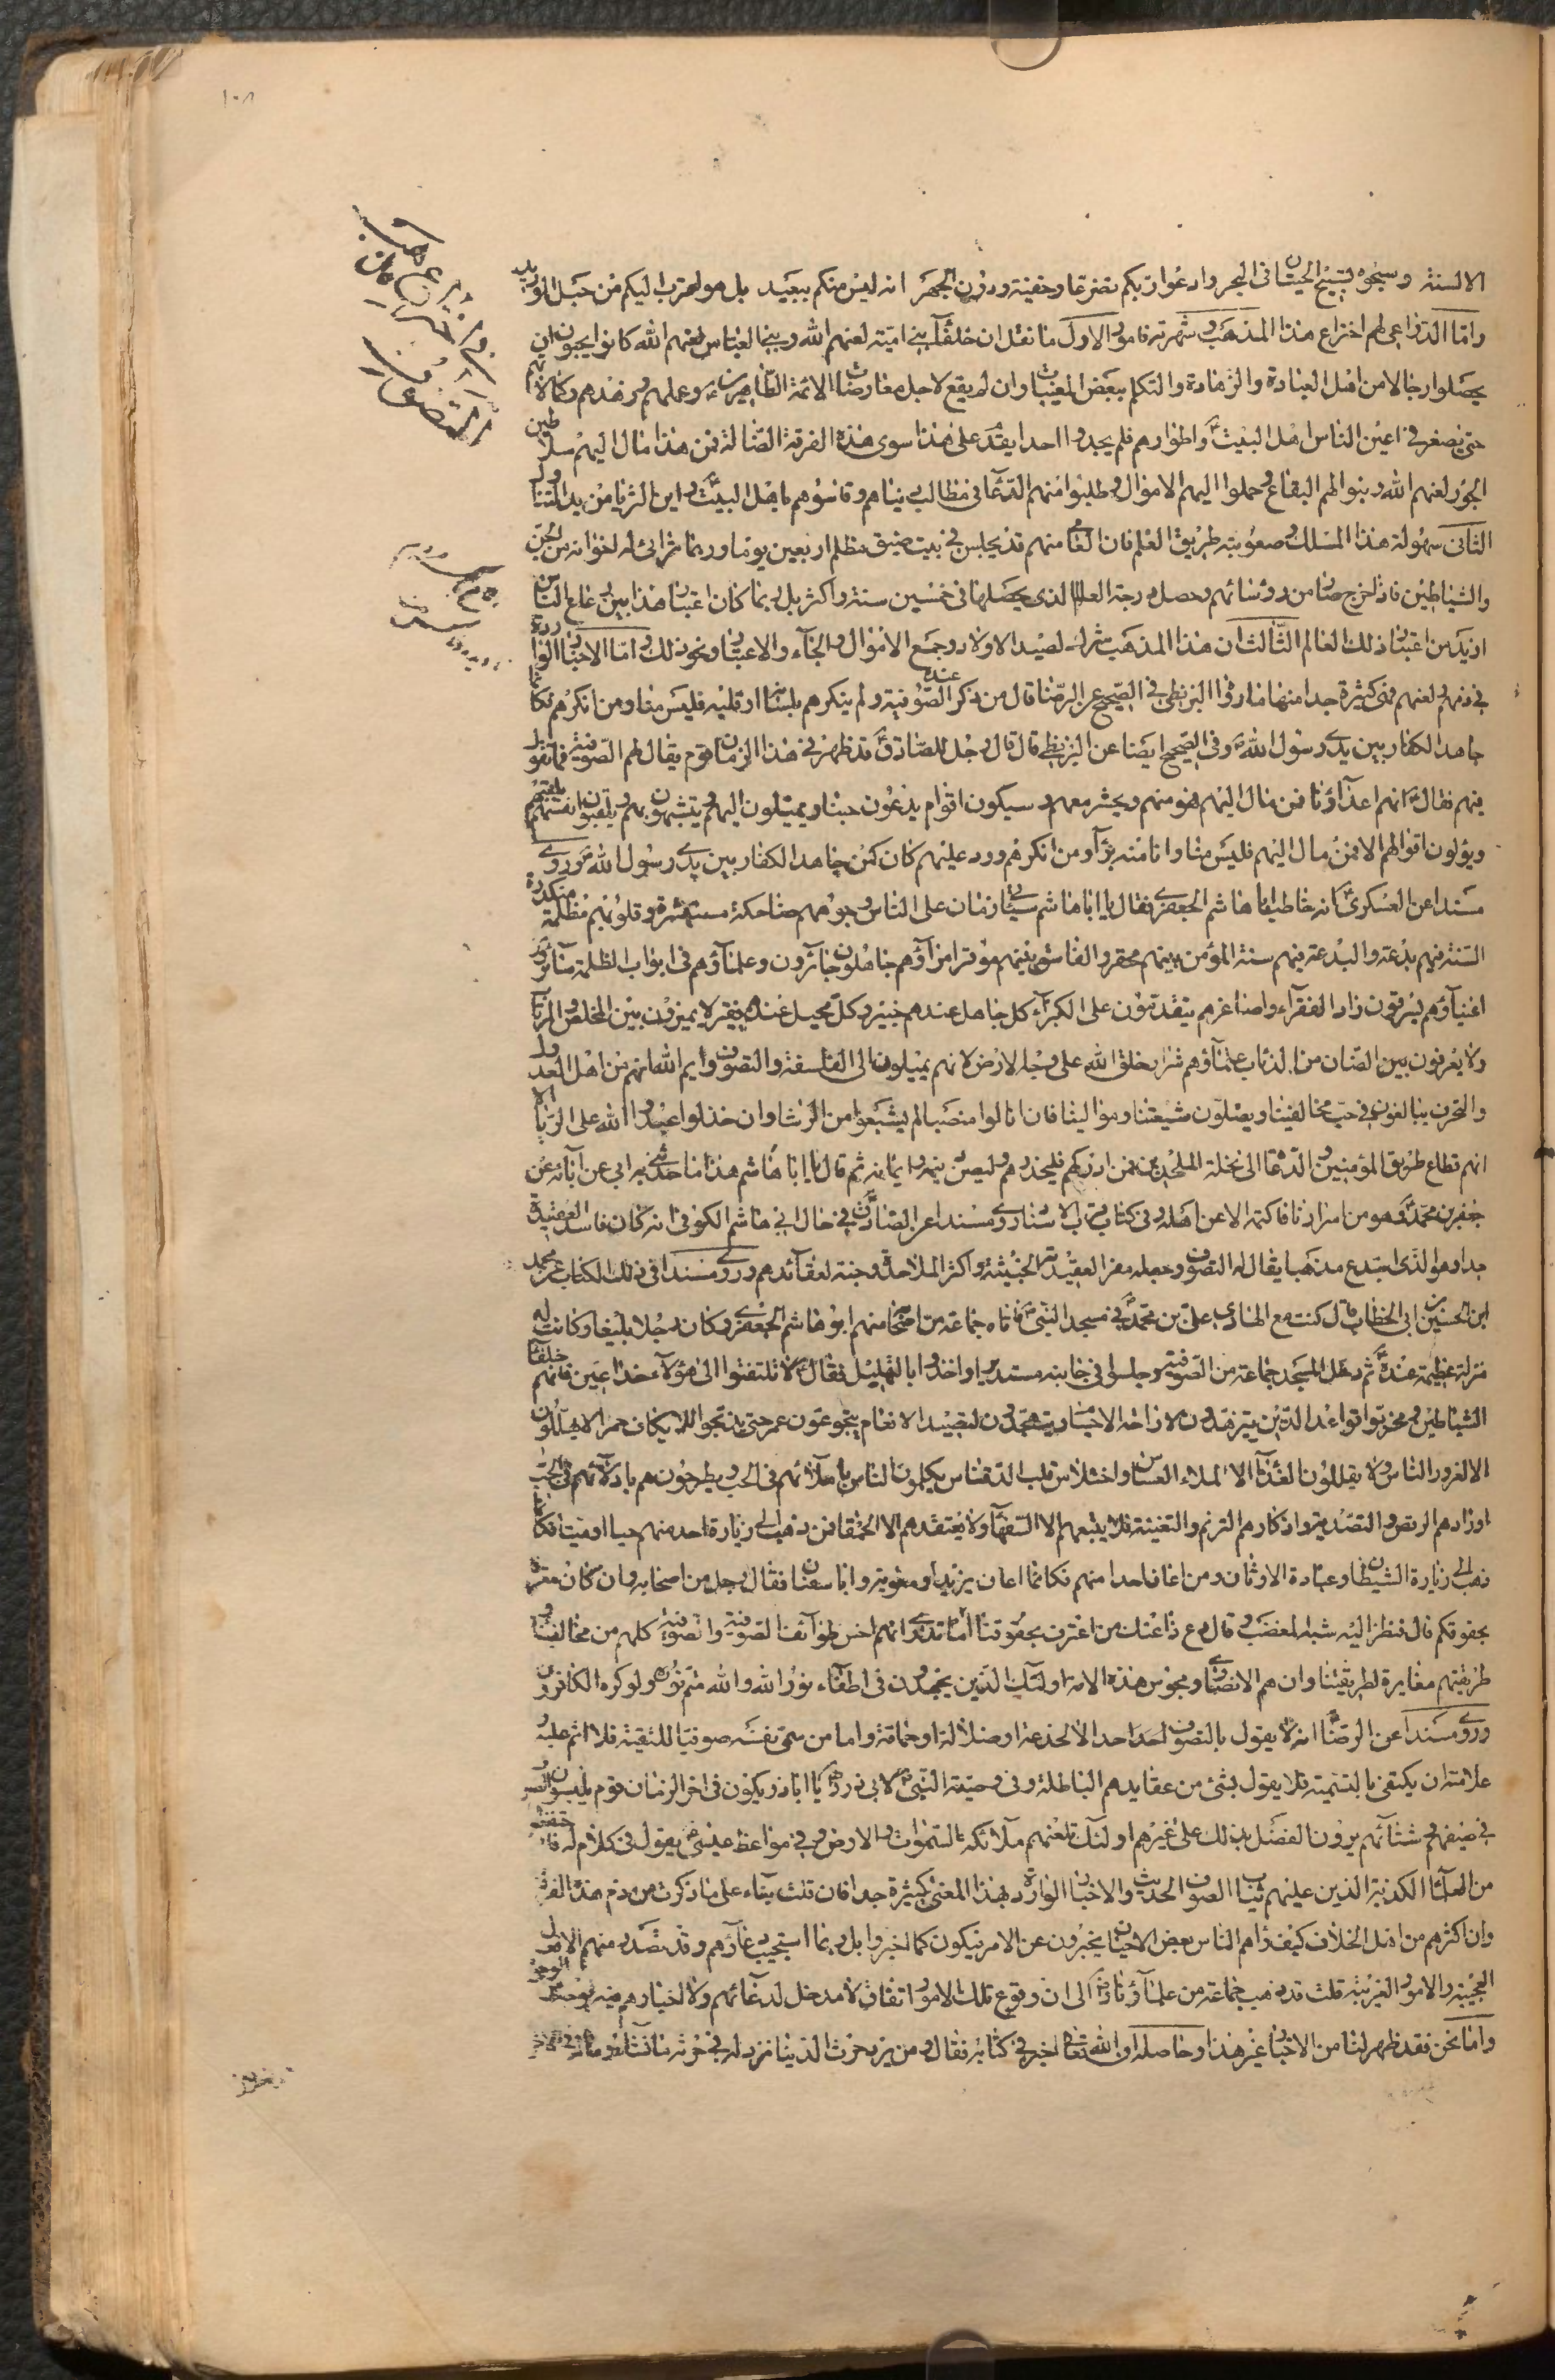 ١٠٨
الالسنة وسبحوه بتسبيح الحيتان فى البحر وادعوا ربكم تضرعا وخفية ودون الجهر انه ليس منكم ببعيد بل هو اقرب اليكم من حبل الوريد
واما الدواعى لهم اختراع هذا المذهب وشهرته فامور الاول ما نقل ان خلفآء بنى امية لعنهم الله وبنى العباس لعنهم الله كانوا يحبون ان
يحصلوا رجالا من اهل العبادة والزهادة والتكلم ببعض المغيبات وان لم يقع لاجل معارضات الائمة الطاهرين ع وعلمهم وزهدهم وكمالاتهم
حتى يصغر فى اعين الناس اهل البيت ع واطوارهم فلم يجدوا احدا يقدم على هذا سوى هذه الفرقة الضالة فمن هذا مال اليهم سلاطين
الجور لعنهم الله وبنوا لهم البقاع وحملوا اليهم الاموال وطلبوا منهم الدعآء فى مطالب دنياهم وقاسوهم باهل البيت ع واين الثريا من يد المتناول
الثانى سهولة هذا المسلك وصعوبة طريق العلم فان العامى منهم قد يجلس فى بيت ضيق مظلم اربعين يوما وربما ترآئى له اخوانه من الجن
والشياطين فاذا خرج صار من رؤسائهم وحصل درجة العالم الذى يحصلها فى خمسين سنة واكثر بل ربما كان اعتبار هذا بين رعاع الناس
ازيد من اعتبار ذلك العالم الثالث ان هذا المذهب شراك لصيد الاولاد وجمع الاموال والجاه والاعتبار ونحو ذلك واما الاخبار الواردة
فى ذمهم ولعنهم فهى كثيرة جدا منها ما رواه البزنطى فى الصحيح عن الرضا قال من ذكر عنده الصوفية ولم ينكرهم بلسانه او قلبه فليس منا ومن انكرهم فكانما
جاهد الكفار بين يدى رسول الله ص وفى الصحيح ايضا عن البزنطى قال قال رجل للصادق ع قد ظهر فى هذا الزمان قوم يقال لهم الصوفية فما تقول
فيهم فقال ع انهم اعدآؤنا فمن مال اليهم فهو منهم ويحشر معهم وسيكون اقوام يدعون حبنا ويميلون اليهم ويتشبهون بهم ويلقبون انفسهم بلقبهم
ويؤلون اقوالهم الا فمن مال اليهم فليس منا وانا منه برآء ومن انكرهم ورد عليهم كان كمن جاهد الكفار بين يدى رسول الله ص وروى
مسندا عن العسكرى ع انه خاطب ابا هاشم الجعفرى فقال يا ابا هاشم سيأتى زمان على الناس وجوههم ضاحكة مستبشرة وقلوبهم مظلمة منكدرة
السنة فيهم بدعة والبدعة فيهم سنة المؤمن بينهم محقر والفاسق بينهم موقر امرآؤهم جاهلون جائرون وعلمآؤهم فى ابواب الظلمة سآئرون
اغنيآؤهم يسرقون زاد الفقرآء واصاغرهم يتقدمون على الكبرآء كل جاهل عندهم خبير وكل محيل عندهم فقير لا يميزون بين المخلص والمرتاب
ولا يعرفون بين الضان من الذئاب علمآؤهم شرار خلق الله على وجه الارض لانهم يميلون الى الفلسفة والتصوف وايم الله انهم من اهل العدول
والتحرف يبالغون فى حب مخالفينا ويضلون شيعتنا وموالينا فان نالوا منصبا لم يشبعوا من الرشا وان خذلوا عبدوا الله على الريا الا
انهم قطاع طريق المؤمنين والدعاة الى نحلة الملحدين فمن ادركهم فليحذرهم وليصن دينه وايمانه ثم قال يا ابا هاشم هذا ما حدثنى به ابى عن آبائه عن
جعفر بن محمد ع وهو من اسرارنا فاكتمه الا عن اهله وفى كتاب قرب الاسناد روى مسندا عن الصادق ع فى حال ابى هاشم الكوفى انه كان فاسد العقيدة
جدا وهو الذى ابتدع مذهبا يقال له التصوف وجعله مفرا لعقيدته الخبيثة واكثر الملاحدة وجنة لعقآئدهم وروى مسندا فى ذلك الكتاب عن محمد
ابن الحسين ابن ابى الخطاب قال كنت مع الهادى على بن محمد ع فى مسجد النبى ص فاتاه جماعة من اصحابه منهم ابو هاشم الجعفرى وكان رجلا بليغا وكانت له
منزلة عظيمة عنده ع ثم دخل المسجد جماعة من الصوفية وجلسوا فى جانبه مستديرا واخذوا بالتهليل فقال ع لا تلتفتوا الى هؤلآء الخداعين فانهم خلفآء
الشياطين ومخربوا قواعد الدين يتزهدون لاراحة الاجسام ويتهجدون لتصييد الانعام يتجوعون عمرا حتى يذبحوا للايكاف حمرا لا يهللون
الا لغرور الناس ولا يقللون الغذآء الا لملاء العساس واختلاس قلب الدفناس يكلمون الناس باملآئهم فى الحب ويطرحونهم بادلآئهم فى الجب
اورادهم الرقص والتصدية واذكارهم الترنم والتغنية فلا يتبعهم الا السفهآء ولا يعتقدهم الا الحمقا فمن ذهب الى زيارة احد منهم حيا او ميتا فكانما
ذهب الى زيارة الشيطان وعبادة الاوثان ومن اعان احدا منهم فكانما اعان يزيد او معوية وابا سفيان فقال رجل من اصحابه وان كان معترفا
بحقوقكم قال فنظر اليه شبه المغضب وقال دع ذا عنك من اعترف بحقوقنا اما تدرى انهم اخس طوآئف الصوفية والصوفية كلهم من مخالفينا و
طريقتهم مغايرة لطريقتنا وان هم الا نصارى ومجوس هذه الامة اولئك الذين يجهدون فى اطفآء نور الله والله متم نوره ولو كره الكافرون
وروى مسندا عن الرضا ع انه لا يقول بالتصوف احد احد الا لخدعة او ضلالة او حماقة واما من سمى نفسه صوفيا للتقية فلا اثم عليه و
علامته ان يكتفى بالتسمية فلا يقول بشئ من عقايدهم الباطلة وفى وصية النبى ص لابى ذر رض يا اباذر يكون فى اخر الزمان قوم يلبسون الصوف
فى صيفهم وشتآئهم يرون الفضل بذلك على غيرهم اولئك تلعنهم ملآئكة السموات والارض وفى مواعظ عيسى ع يقول فى كلام له
من العلمآء الكذبة الذين عليهم ثياب الصوف الحديث والاخبار الواردة بهذا المعنى كثيرة جدا فان قلت بنآء على ما ذكرت من ذم هذه الفرقة
وان اكثرهم من اهل الخلاف كيف نراهم الناس بعض الاحيان يخبرون عن الامر فيكون كما اخبروا بل ربما استجيب دعآؤهم وقد تصدر منهم الامور
العجيبة والامور الغريبة قلت قد ذهب جماعة من علمآؤنا رض الى ان وقوع تلك الامور اتفاقى لا مدخل لدعائهم ولا لاخبارهم فيه بوجه من الوجوه
واما نحن فقد ظهر لنا من الاخبار غير هذا وحاصله ان الله تعالى اخبر فى كتابه فقال ومن يرد حرث الدنيا نزد له فى حرثه